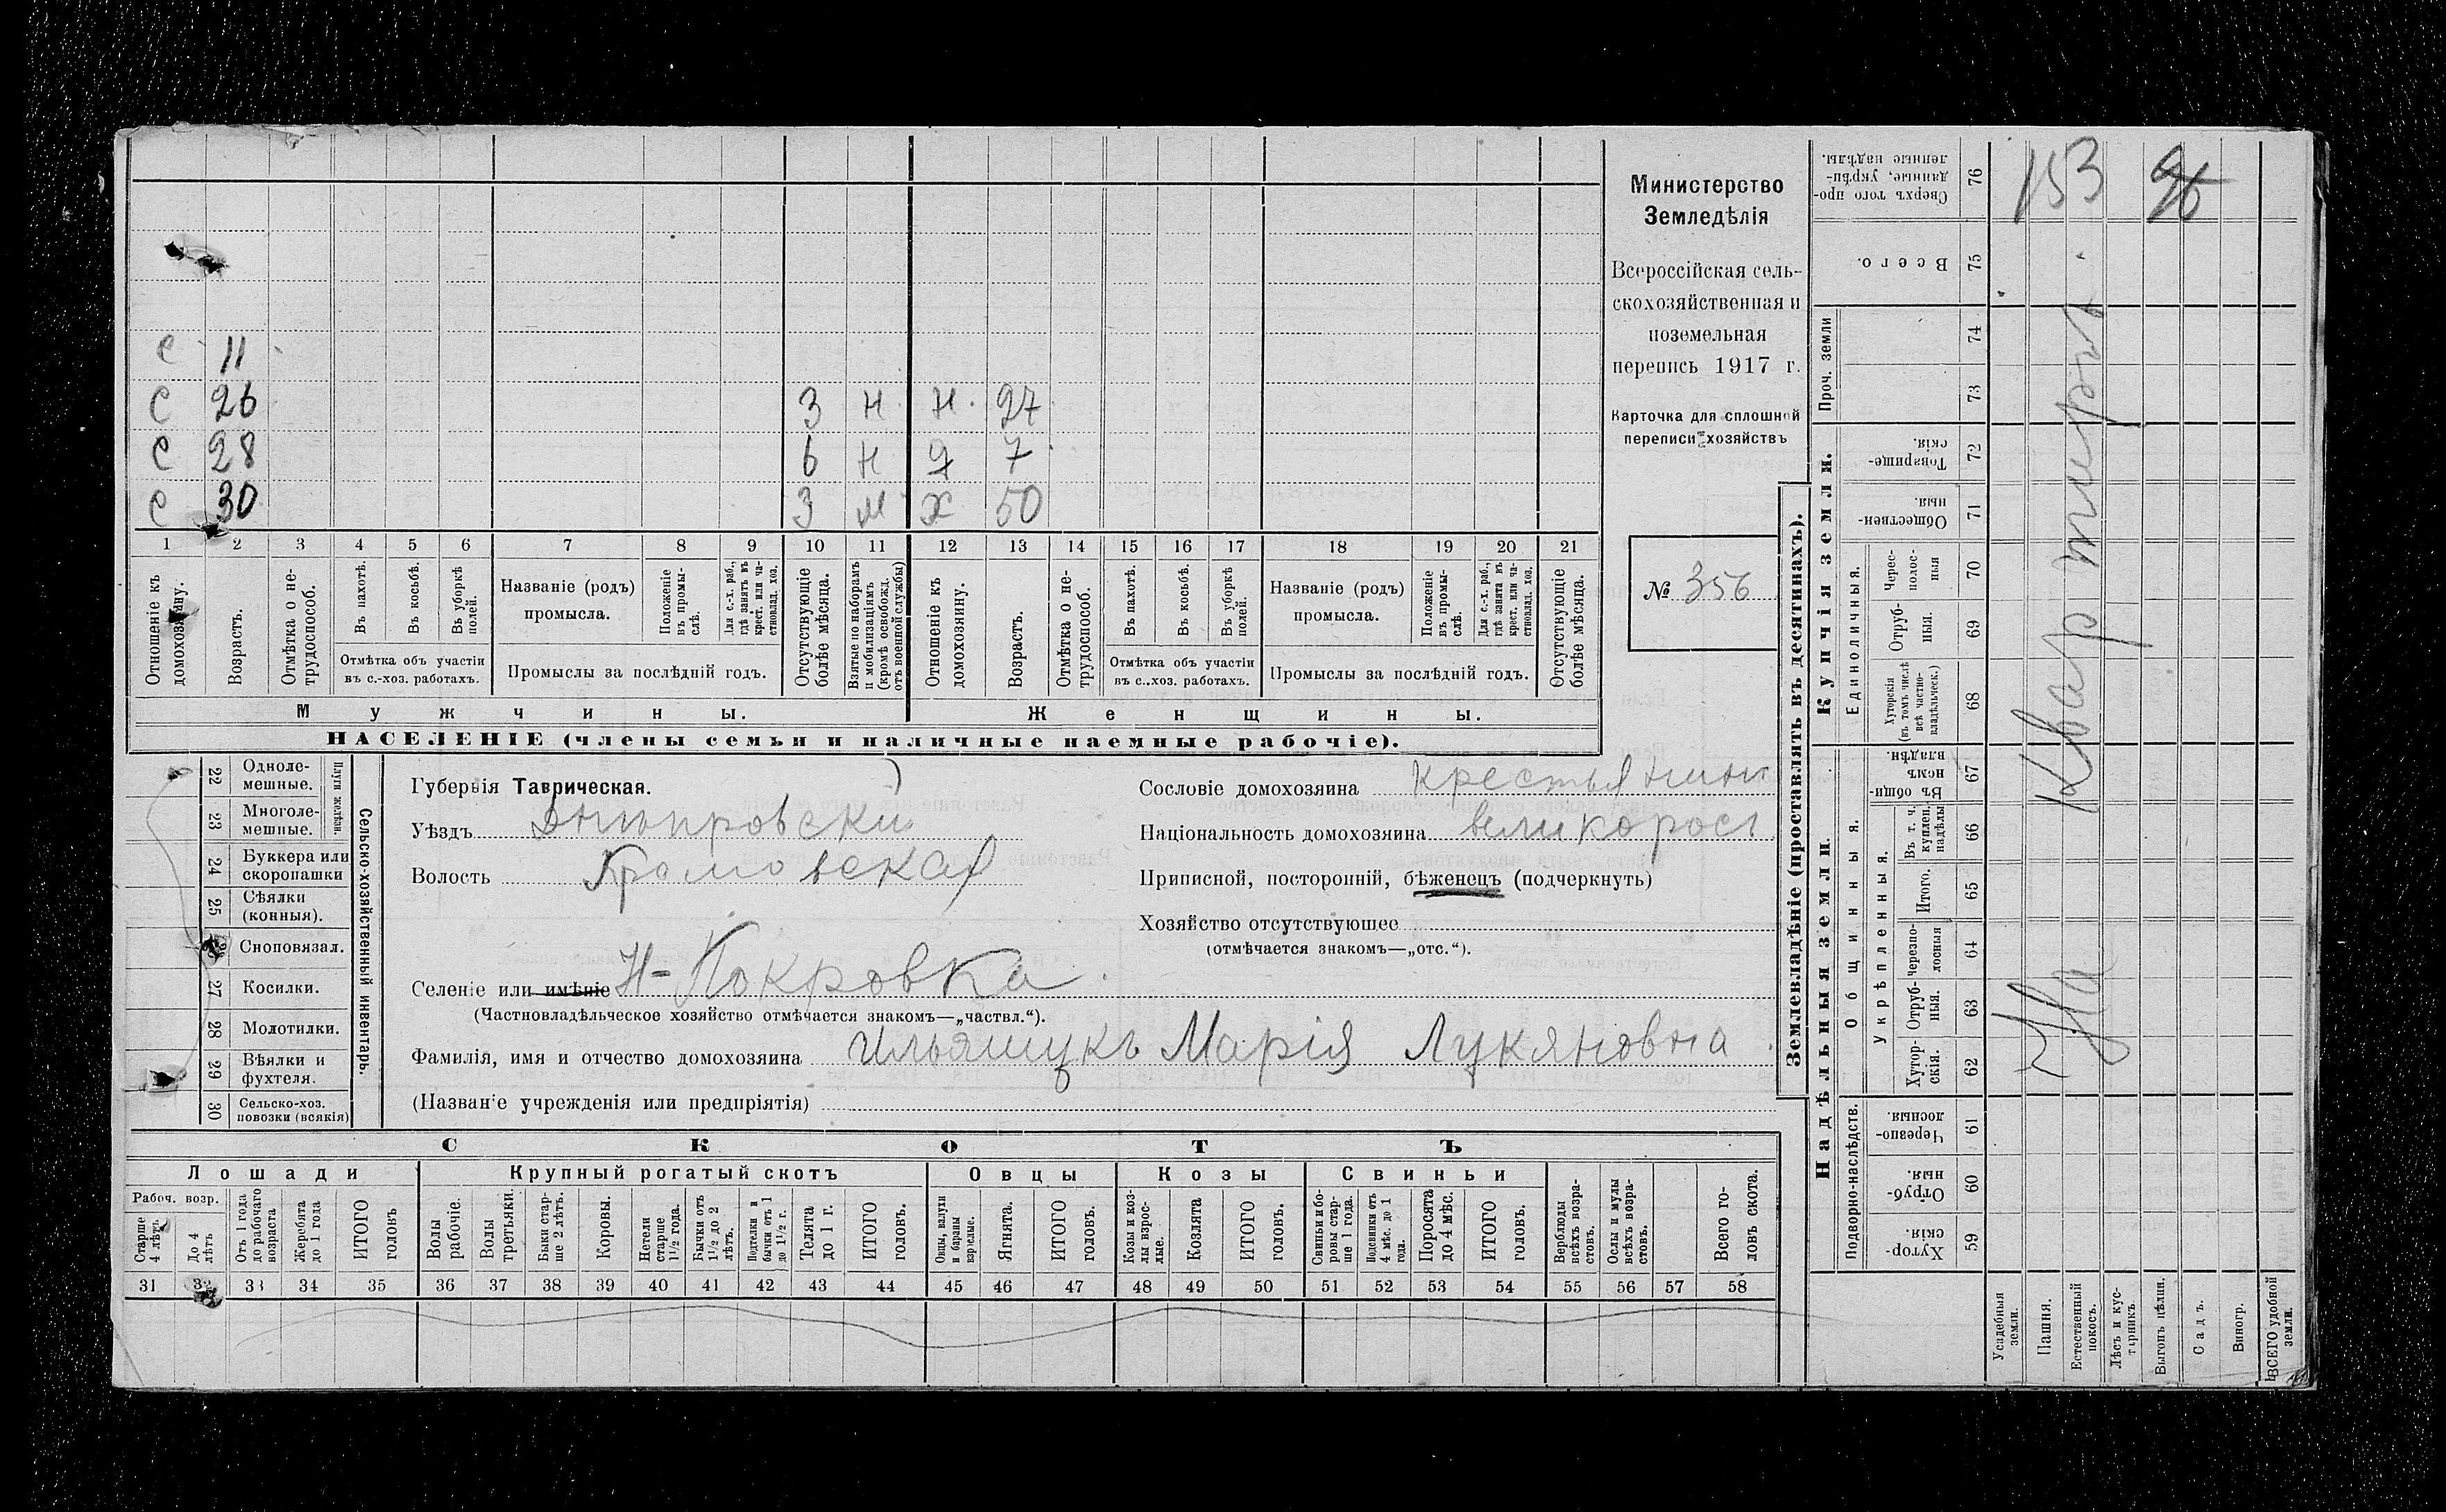 Министерство
Земледѣлія
Всероссійская сель-
скохозяйственная и
поземельная
перепись 1917 г.
Карточка для сплошной
переписи хозяйствъ
№ 356
с 11
с 26 3 н н. 27
с 28 6 н 7
с 30 3 м х 50
1 2 3 4 5 6 7 8 9 10 11 12 13 14 15 16 17 18 19 20 21
Отношеніе къ домохозяину.
Возрастъ.
Отмѣтка о не-трудоспособ.
Въ пахотѣ.
Въ косьбѣ.
Въ уборкѣ полей.
Отмѣтка объ участіи
въ с.-хоз. работахъ.
Названіе (родъ)
промысла.
Положеніе въ промы-слѣ.
Для с.-х. раб., гдѣ занятъ въ крест. или ча-стновлад. хоз.
Промыслы за послѣдній годъ.
Отсутствующіе болѣе мѣсяца.
Взятые по наборамъ и мобилизаціямъ (кромѣ освобожд. отъ военной службы)
Отношеніе къ домохозяину.
Возрастъ.
Отмѣтка о не-трудоспособ.
Въ пахотѣ.
Въ косьбѣ.
Въ уборкѣ полей.
Отмѣтка объ участіи
въ с..хоз. работахъ.
Названіе (родъ)
промысла.
Положеніе въ промы-слѣ.
Для с.-х. раб., гдѣ занята въ крест. или ча-стновлад. хоз.
Промыслы за послѣдній годъ.
Отсутствующіе болѣе мѣсяца.
Мужчины. Женщины.
НАСЕЛЕНІЕ (члены семьи и наличные наемные рабочіе).
22 Одноле-мешные.
23 Многоле-мешные.
Плуги желѣзн.
24 Буккера или скоропашки
25 Сѣялки (конныя).
Сноповязал.
27 Косилки.
28 Молотилки.
29 Вѣялки и фухтеля.
30 Сельско-хоз. повозки (всякія)
Сельско-хозяйственный инвентарь.
Губернія Таврическая.
Уѣздъ Днѣпровскій
Волость Громовская
Селеніе или имѣніе Н-Покровка
(Частновладѣльческое хозяйство отмѣчается знакомъ—„частвл.“).
Фамилія, имя и отчество домохозяина Ильяшукъ Марія Лукяновна
(Названіе учрежденія или предпріятія)
Сословіе домохозяина крестьянинъ
Національность домохозяина великорос
Приписной, посторонній, бѣженецъ (подчеркнуть)
Хозяйство отсутствующее
(отмѣчается знакомъ—„отс.“).
СКОТЪ
Лошади Крупный рогатый скотъ Овцы Козы Свиньи
Рабоч. возр.
Старше 4 лѣтъ
До 4 лѣтъ
Отъ 1 года до рабочаго возраста
Жеребята до 1 года
ИТОГО головъ
Волы рабочіе.
Волы третьяки.
Быки стар-ше 2 лѣтъ.
Коровы.
Нетели старше 1½ года.
Бычки отъ 1½ до 2 лѣтъ.
Подтелки и бычки отъ 1 до 1½ г.
Телята до 1 г.
ИТОГО головъ.
Овцы, валухи и бараны взрослые.
Ягнята.
ИТОГО головъ.
Козы и коз-лы взрос-лые.
Козлята
ИТОГО головъ.
Свиньи и бо-ровы стар-ше 1 года.
Подсвинки отъ 4 мѣс. до 1 года.
Поросята до 4 мѣс.
ИТОГО головъ.
Верблюды всѣхъ возра-стовъ.
Ослы и мулы всѣхъ возра-стовъ.
Всего го-ловъ скота.
31 32 33 34 35 36 37 38 39 40 41 42 43 44 45 46 47 48 49 50 51 52 53 54 55 56 57 58
Землевладѣніе (проставлять въ десятинахъ).
Надѣльныя земли. Купчія земли.
76 Сверхъ того про-данные, укрѣп-ленные надѣлы.
75 Всего.
Проч. земли
74
73
72 Товарище-скія.
71 Обществен-ныя
Единоличныя.
70 Черес-полос-ныя
69 Отруб-ныя.
68 Хуторскія (въ томъ числѣ всѣ частно-владѣльческ.)
67 Въ общи-номъ владѣн.
Общинныя.
Укрѣпленныя.
66 Въ т. ч. куплен. надѣлы
65 Итого.
64 Черезпо-лосныя
63 Отруб-ныя.
62 Хутор-скія.
Подворно-наслѣдств.
61 Черезпо-лосныя.
60 Отруб-ныя.
59 Хутор-скія.
Усадебныя земли.
Пашня.
Естественный покосъ.
Лѣсъ и кус-тарникъ.
Выгонъ цѣлин.
Садъ.
Виногр.
ВСЕГО удобной земли.
На Квартирѣ.
153